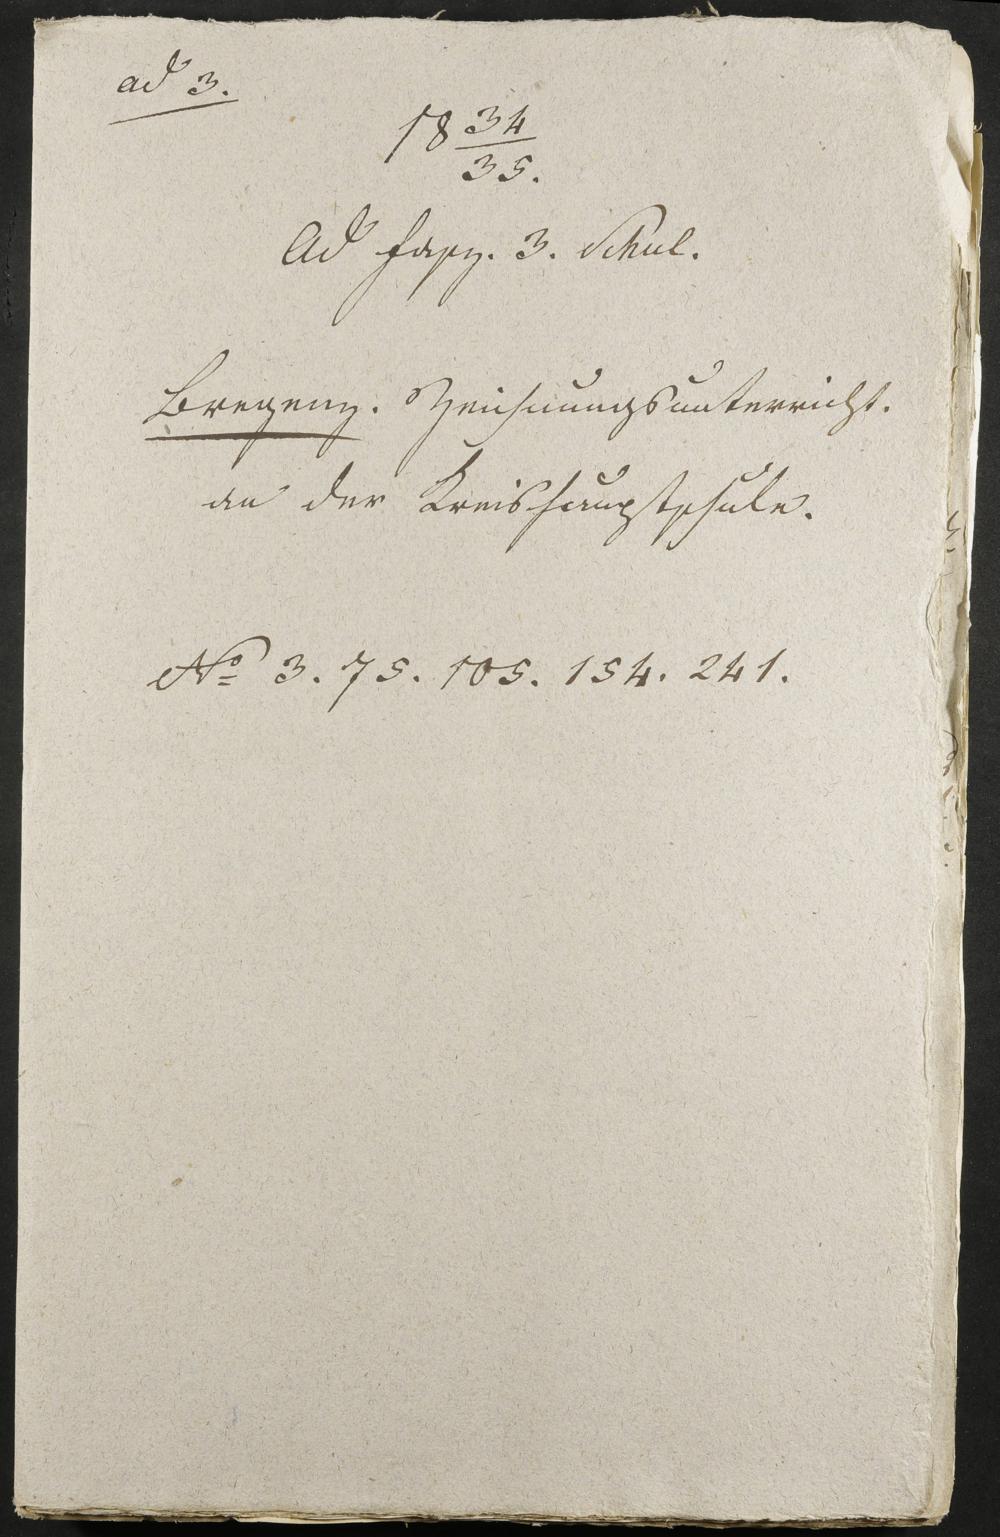 ad 3.
18 34/35.
Ad Fasz. 3. Schul.
Bregenz. Zeichnungsunterricht.
an der Kreishauptschule.
No 3. 75. 105. 154. 241.